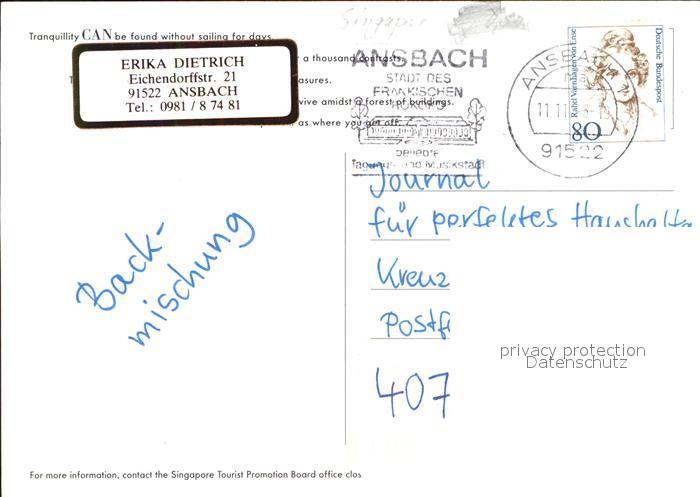 Singapur
Tranquillity CAN be found without sailing for days.
a thousand contrasts.
asures.
vive amidst a forest of buildings.
as where you get off.
ERIKA DIETRICH
Eichendorffstr. 21
91522 ANSBACH
Tel.: 0981 / 8 74 81
ANSBACH
STADT DES
FRÄNKISCHEN
ROKOKO
beliebte
Tagungs- und Musikstadt
ANSBA
11.11
91522
Rahel Varnhagen von Ense
80
Deutsche Bundespost
Journal
für perfektes Haushalte
Kreuz
Postf
407
Back-
mischung
privacy protection
Datenschutz
For more information, contact the Singapore Tourist Promotion Board office clos